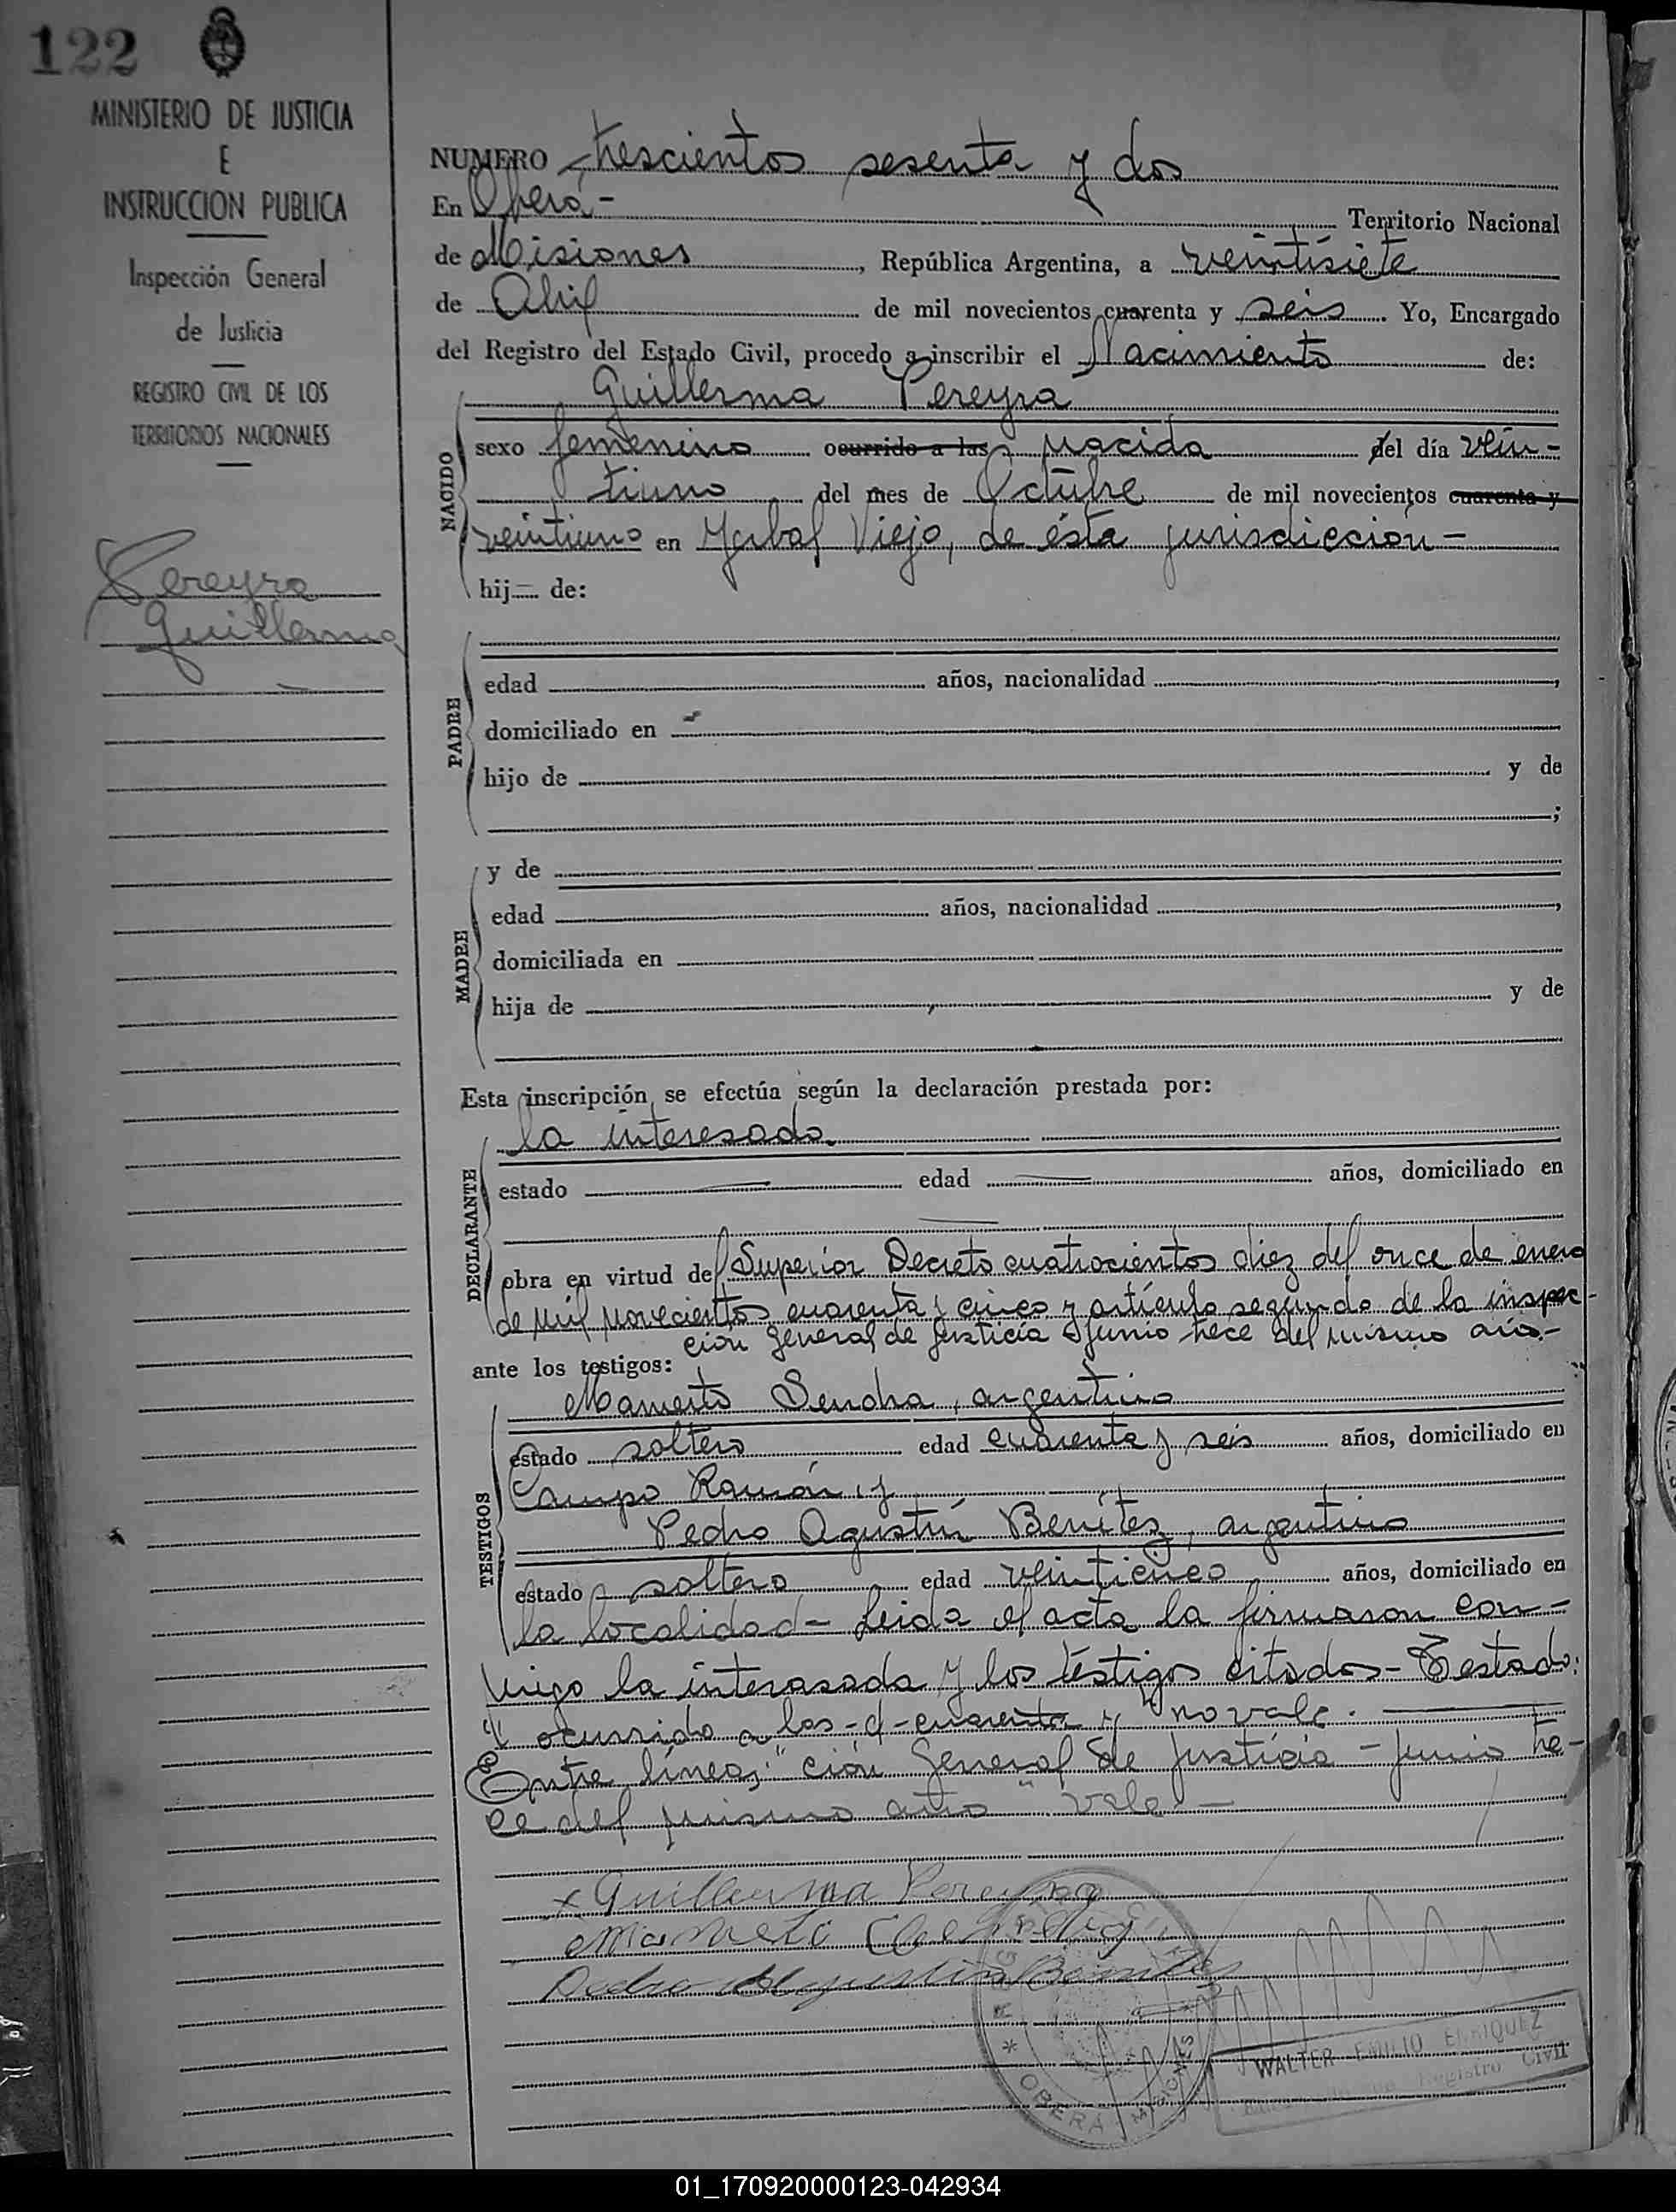 122
MINISTERIO DE JUSTICIA
E
INSTRUCCION PUBLICA
Inspección General
de Justicia
REGISTRO CIVIL DE LOS
TERRITORIOS NACIONALES
Pereyra
Guillerma
NUMERO trescientos sesenta y dos
En Oberá- Territorio Nacional
de Misiones, República Argentina, a veintisiete
de Abril de mil novecientos cuarenta y seis. Yo, Encargado
del Registro del Estado Civil, procedo a inscribir el Nacimiento de:
Guillerma Pereyra
NACIDO
sexo femenino ocurrido a las nacida del día vein-
tiuno del mes de Octubre de mil novecientos cuarenta y
veintiuno en Yerbal Viejo, de ésta jurisdicción-
hij de:
PADRE
edad años, nacionalidad ,
domiciliado en
hijo de y de
;
MADRE
y de
edad años, nacionalidad ,
domiciliada en
hija de y de
Esta inscripción se efectúa según la declaración prestada por:
DECLARANTE
la interesada
estado edad años, domiciliado en
obra en virtud del Superior Decreto cuatrocientos diez del once de enero
de mil novecientos cuarenta y cinco y artículo segundo de la inspec-
ción General de Justicia Junio trece del mismo año.-
ante los testigos:
TESTIGOS
Mamerto , argentino
estado soltero edad cuarenta y seis años, domiciliado en
Campo Ramón, y
Pedro Agustín Benítez, argentino
estado soltero edad veinticinco años, domiciliado en
la localidad- Leida el acta la firmaron con-
migo la interasada y los testigos citados- Testado:
"ocurrido a las-d-cuarenta y" no vale.
Entre líneas: "ción General de Justicia - Junio tre-
ce del mismo año" vale-
x Guillerma Pereyra
Mamerto
Pedro Agustin Benitez
OBERÁ MISIONES
WALTER EMILIO ENRIQUEZ
Registro Civil
01_170920000123-042934